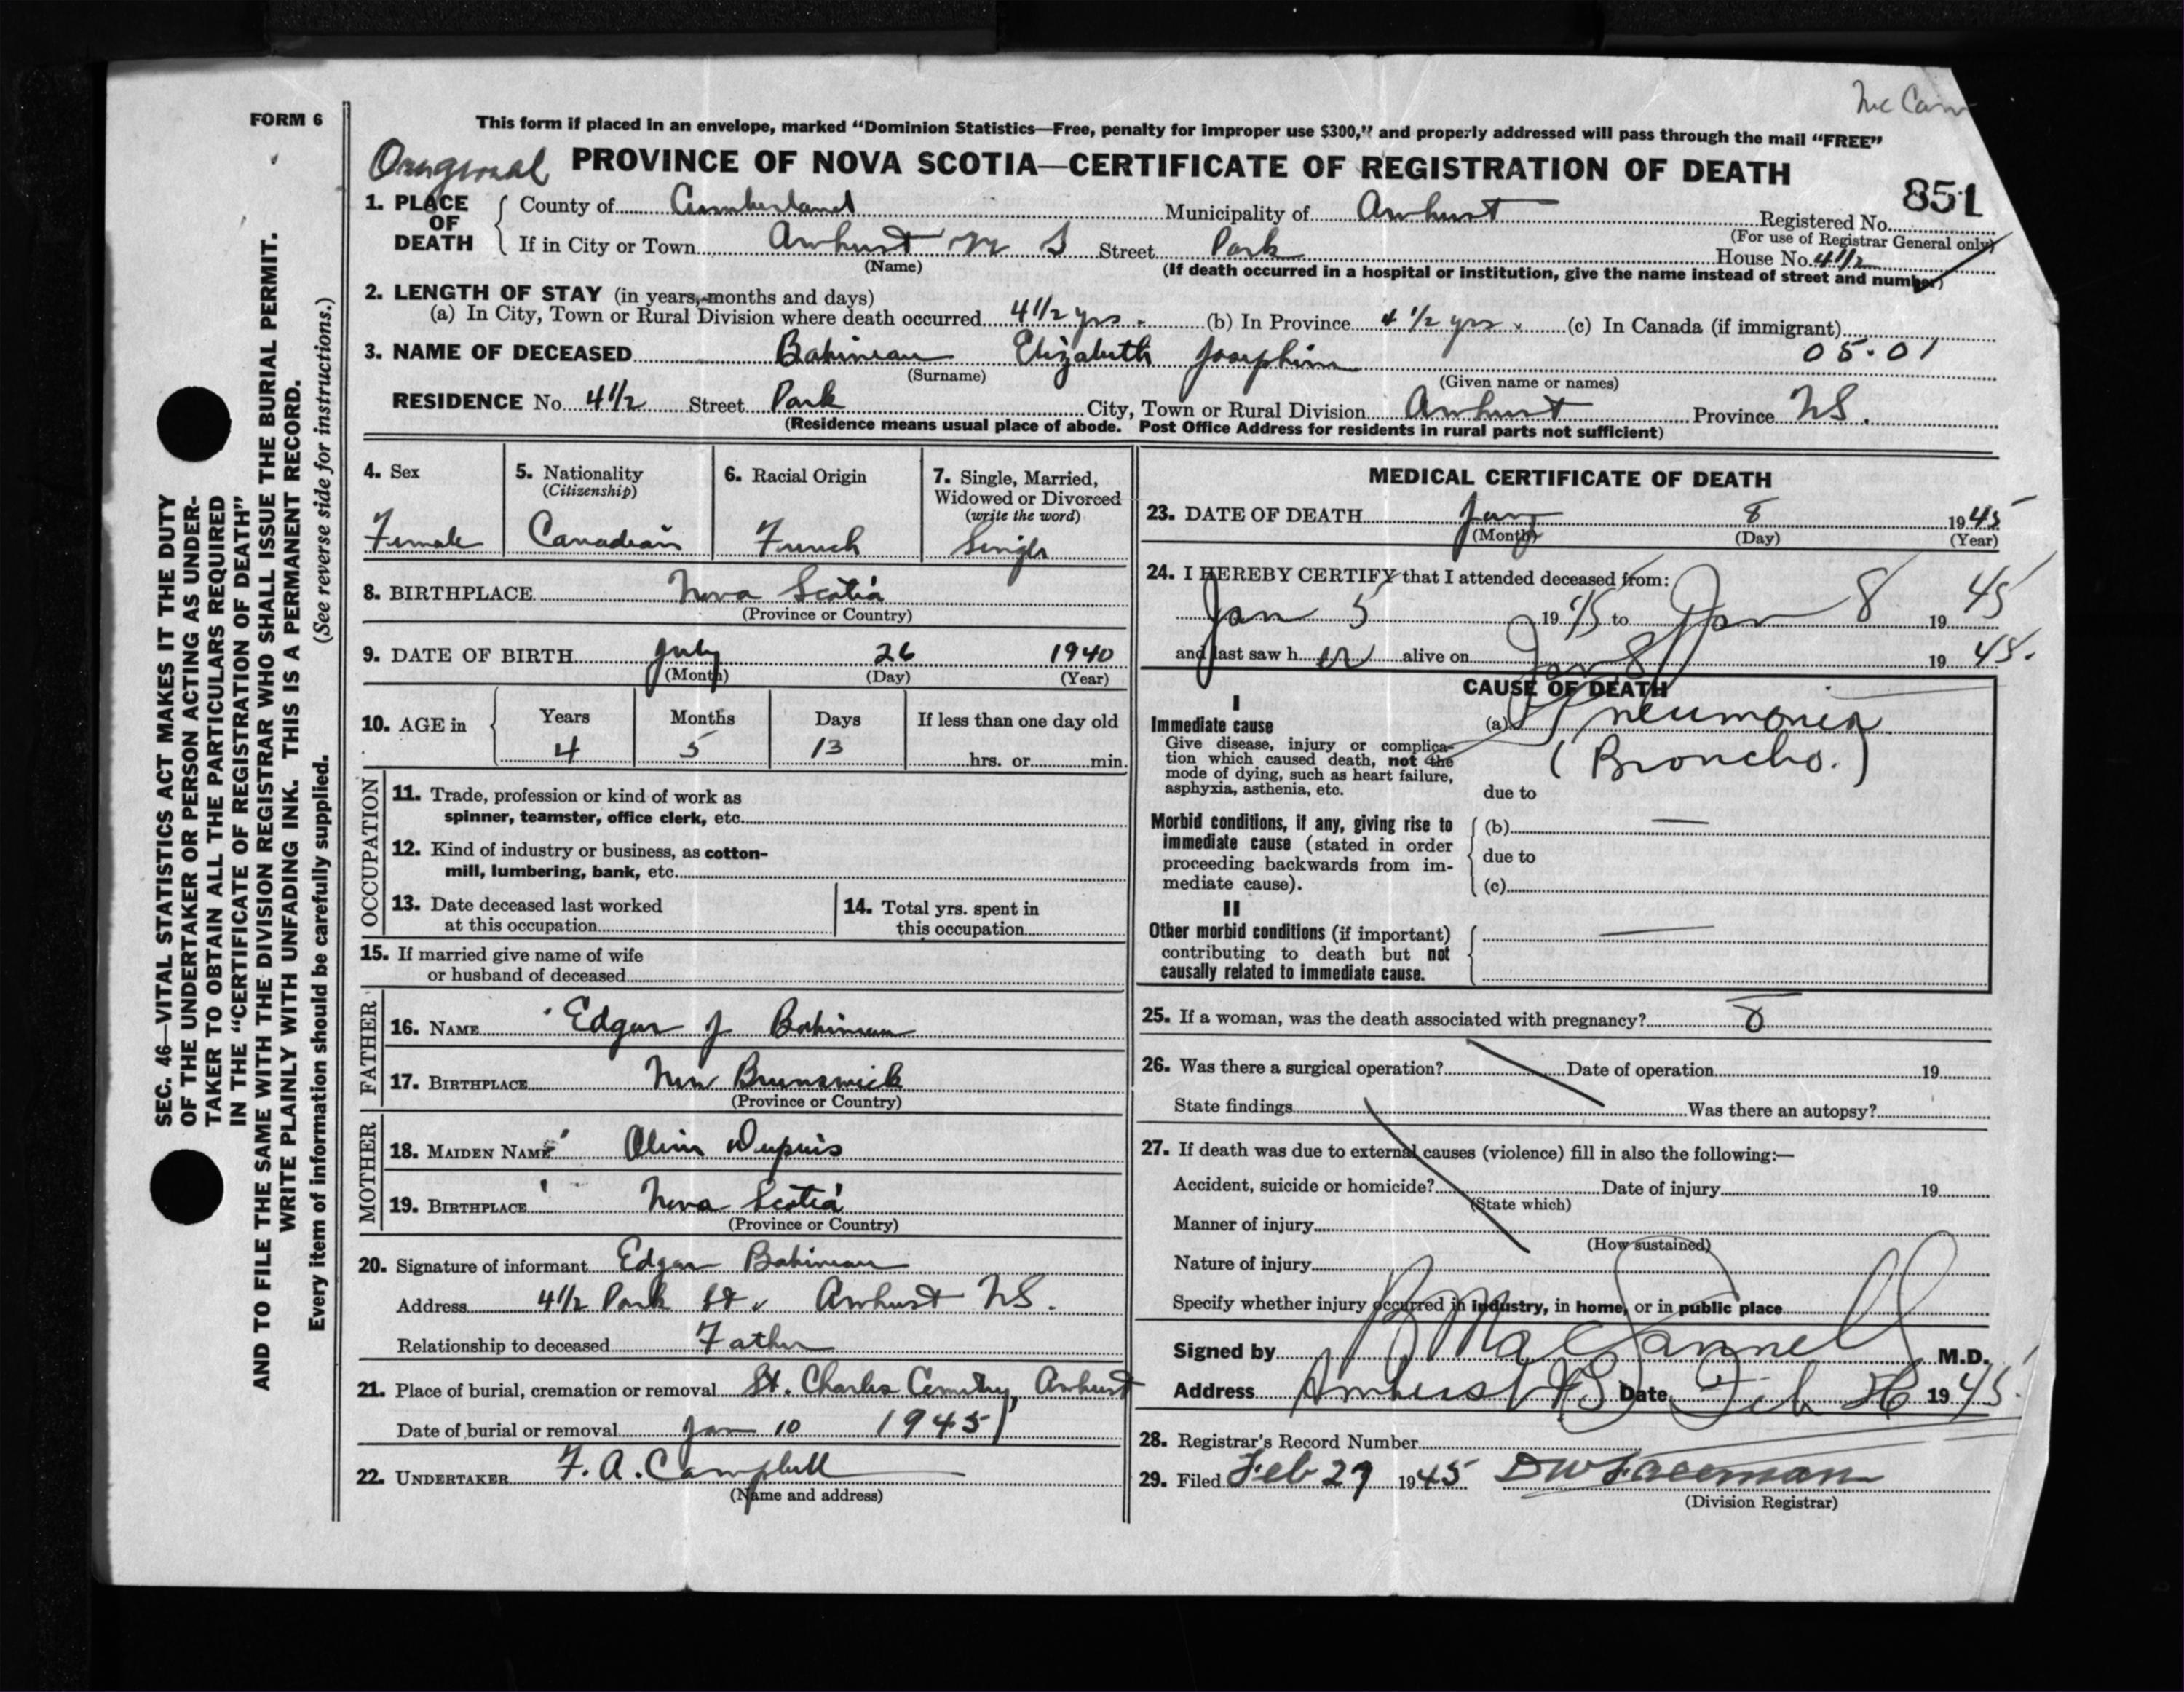 Mc Cann
FORM 6
This form if placed in an envelope, marked “Dominion Statistics—Free, penalty for improper use $300,” and properly addressed will pass through the mail “FREE”
Original PROVINCE OF NOVA SCOTIA—CERTIFICATE OF REGISTRATION OF DEATH
851
1. PLACE OF DEATH County of Cumberland Municipality of Amherst Registered No.
(For use of Registrar General only)
If in City or Town Amherst N S Street Park House No. 4 1/2
(Name) (If death occurred in a hospital or institution, give the name instead of street and number)
2. LENGTH OF STAY (in years, months and days)
(a) In City, Town or Rural Division where death occurred 4 1/2 yrs. (b) In Province 4 1/2 yrs (c) In Canada (if immigrant)
05.01
3. NAME OF DECEASED Babineau Elizabeth Josephine
(Surname) (Given name or names)
RESIDENCE No. 4 1/2 Street Park City, Town or Rural Division Amherst Province NS.
(Residence means usual place of abode. Post Office Address for residents in rural parts not sufficient)
4. Sex Female
5. Nationality (Citizenship) Canadian
6. Racial Origin French
7. Single, Married, Widowed or Divorced (write the word) Single
8. BIRTHPLACE Nova Scotia
(Province or Country)
9. DATE OF BIRTH July 26 1940
(Month) (Day) (Year)
10. AGE in Years Months Days If less than one day old
4 5 13 hrs. or min.
OCCUPATION
11. Trade, profession or kind of work as
spinner, teamster, office clerk, etc.
12. Kind of industry or business, as cotton-
mill, lumbering, bank, etc.
13. Date deceased last worked
at this occupation
14. Total yrs. spent in
this occupation
15. If married give name of wife
or husband of deceased
FATHER
16. NAME Edgar J Babineau
17. BIRTHPLACE New Brunswick
(Province or Country)
MOTHER
18. MAIDEN NAME Dupuis
19. BIRTHPLACE Nova Scotia
(Province or Country)
20. Signature of informant Edgar Babineau
Address 4 1/2 Park St Amherst NS.
Relationship to deceased Father
21. Place of burial, cremation or removal St. Charles Cemetery, Amherst
Date of burial or removal Jan 10 1945
22. UNDERTAKER F. A. Campbell
(Name and address)
MEDICAL CERTIFICATE OF DEATH
23. DATE OF DEATH Jany 8 1945
(Month) (Day) (Year)
24. I HEREBY CERTIFY that I attended deceased from:
Jan 5 1945 to Jan 8 1945
and last saw her alive on Jan 8 1945.
CAUSE OF DEATH
I
Immediate cause
Give disease, injury or complica-
tion which caused death, not the
mode of dying, such as heart failure,
asphyxia, asthenia, etc.
(a) Pneumonia
(Broncho.)
due to
Morbid conditions, if any, giving rise to
immediate cause (stated in order
proceeding backwards from im-
mediate cause).
(b) —
due to
(c)
II
Other morbid conditions (if important)
contributing to death but not
causally related to immediate cause.
—
25. If a woman, was the death associated with pregnancy?
26. Was there a surgical operation? Date of operation 19
State findings Was there an autopsy?
27. If death was due to external causes (violence) fill in also the following:—
Accident, suicide or homicide? Date of injury 19
(State which)
Manner of injury
(How sustained)
Nature of injury
Specify whether injury occurred in industry, in home, or in public place
Signed by M.D.
Address Amherst NS Date Feb 26 1945.
28. Registrar's Record Number
29. Filed Feb 27 1945
(Division Registrar)
SEC. 46—VITAL STATISTICS ACT MAKES IT THE DUTY
OF THE UNDERTAKER OR PERSON ACTING AS UNDER-
TAKER TO OBTAIN ALL THE PARTICULARS REQUIRED
IN THE “CERTIFICATE OF REGISTRATION OF DEATH”
AND TO FILE THE SAME WITH THE DIVISION REGISTRAR WHO SHALL ISSUE THE BURIAL PERMIT.
WRITE PLAINLY WITH UNFADING INK. THIS IS A PERMANENT RECORD.
Every item of information should be carefully supplied. (See reverse side for instructions.)